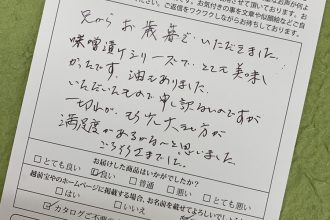 せて頂いております。お
お気付きの事を文章や似顔絵など
ご返信をワクワクしながらお待ちしております。
兄からお歳暮でいただきました。
味噌漬けシリーズで、とても美味し
かったです。油もありました。
いただいたもので申し訳ないのですが
一切れが、もう少し大きい方が
満足度があるかな〜と思いました。
ごちそうさまでした。
お届けした商品はいかがでしたか?
□とても良い ☑良い □普通 □悪い □とても悪い
越前宝やのホームページに掲載する場合、お名前を載せてよろしいでしょうか
□はい □いいえ
☑カタログご不要